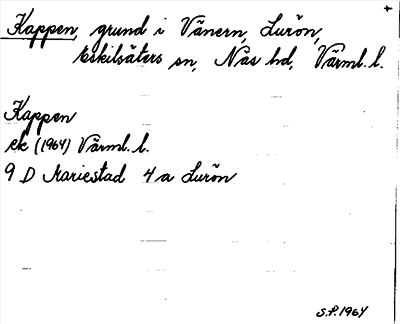 Kappen, grund i Vänern, Lurön,
Eskilsäters sn, Näs hd, Värml. l.
Kappen
ek (1964) Värml. l.
9 D Mariestad 4 a Lurön
S.P. 1964